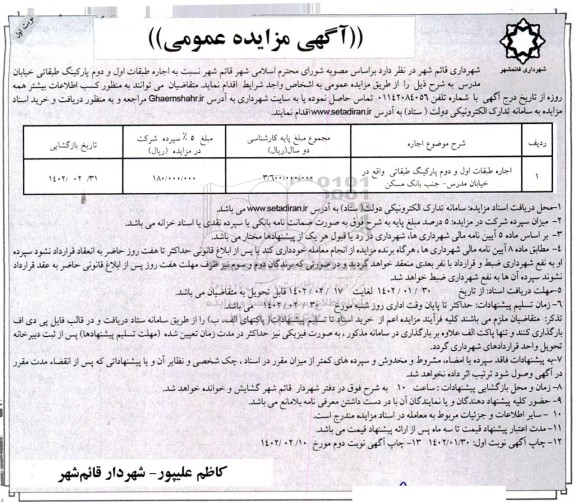 نوبت اول
((آگهی مزایده عمومی))
شهرداری قائمشهر
شهرداری قائم شهر در نظر دارد براساس مصوبه شورای محترم اسلامی شهر قائم شهر نسبت به اجاره طبقات اول و دوم پارکینگ طبقاتی خیابان
مدرس به شرح ذیل را از طریق مزایده عمومی به اشخاص واجد شرایط اقدام نماید. متقاضیان می توانند به منظور کسب اطلاعات بیشتر همه
روزه از تاریخ درج آگهی با شماره تلفن ۰۱۱۴۲۰۸۴۰۵۶ تماس حاصل نموده یا به سایت شهرداری به آدرس Ghaemshahr.ir مراجعه و به منظور دریافت و خرید اسناد
مزایده به سامانه تدارک الکترونیکی دولت ( ستاد) به آدرس www.setadiran.ir اقدام نمایند.
ردیف شرح موضوع اجاره مجموع مبلغ پایه کارشناسی دو سال(ریال) مبلغ ۵ ٪ سپرده شرکت در مزایده (ریال) تاریخ بازگشایی
۱ اجاره طبقات اول و دوم پارکینگ طبقاتی واقع در خیابان مدرس- جنب بانک مسکن ۳/۶۰۰/۰۰۰/۰۰۰ ۱۸۰/۰۰۰/۰۰۰ ۱۴۰۲/ ۰۲ /۳۱
۱–محل دریافت اسناد مزایده: سامانه تدارک الکترونیکی دولت(ستاد) به آدرس www.setadiran.ir می باشد.
۲– میزان سپرده شرکت در مزایده: ۵ درصد مبلغ پایه به شرح فوق به صورت ضمانت نامه بانکی یا سپرده نقدی یا اسناد خزانه می باشد.
۳– بر اساس ماده ۵ آیین نامه مالی شهرداری ها، شهرداری در رد یا قبول هر یک از پیشنهادها مختار می باشد.
۴– مطابق ماده ۸ آیین نامه مالی شهرداری ها ، هرگاه برنده مزایده از انجام معامله خودداری کند یا پس از ابلاغ قانونی حداکثر تا هفت روز حاضر به انعقاد قرارداد نشود سپرده
او به نفع شهرداری ضبط و قرارداد با نفر بعدی منعقد خواهد گردید و در صورتی که برندگان دوم و سوم نیز ظرف مهلت هفت روز پس از ابلاغ قانونی حاضر به عقد قرارداد
نشوند سپرده آن ها به نفع شهرداری ضبط خواهد شد.
۵–مهلت دریافت اسناد: از تاریخ ۱۴۰۲/۰۱/۳۰ لغایت ۱۴۰۲/۰۲/۱۷ قابل تحویل به متقاضیان می باشد.
۶– زمان تسلیم پیشنهادات: حداکثر تا پایان وقت اداری روز شنبه مورخ ۱۴۰۲/۰۲/۳۰ می باشد.
تذکر: متقاضیان ملزم می باشند کلیه فرآیند مزایده اعم از خرید اسناد تا تسلیم پیشنهادات( پاکتهای الف، ب) را از طریق سامانه ستاد دریافت و در قالب فایل پی دی اف
بارگذاری کنند و تنها پاکت الف علاوه بر بارگذاری در سامانه مذکور ، به صورت فیزیکی نیز حداکثر در مدت زمان تعیین شده (مهلت تسلیم پیشنهادها) پس از ثبت دبیرخانه
تحویل واحد قراردادهای شهرداری گردد.
۷–به پیشنهادات فاقد سپرده یا امضاء، مشروط و مخدوش و سپرده های کمتر از میزان مقرر در اسناد ، چک شخصی و نظایر آن و یا پیشنهاداتی که پس از انقضاء مدت مقرر
در آگهی وصول شود ترتیب اثر داده نخواهد شد.
۸– زمان و محل بازگشایی پیشنهادات : ساعت ۱۰ به شرح فوق در دفتر شهردار قائم شهر گشایش و خوانده خواهد شد.
۹– حضور کلیه پیشنهاد دهندگان و یا نمایندگان آن با در دست داشتن معرفی نامه بلامانع می باشد.
۱۰ – سایر اطلاعات و جزئیات مربوط به معامله در اسناد مزایده مندرج است.
۱۱– مدت اعتبار پیشنهاد قیمت تا سه ماه پس از ارائه پیشنهاد قیمت می باشد.
۱۲– چاپ آگهی نوبت اول: ۱۴۰۲/۰۱/۳۰ ۱۳– چاپ آگهی نوبت دوم مورخ ۱۴۰۲/۰۲/۱۰
کاظم علیپور– شهردار قائم‌شهر